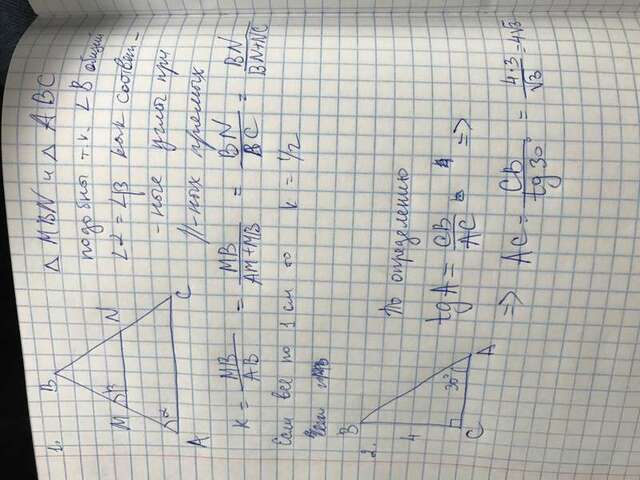 1.
B
△ MBN и △ ABC
подобны т.к. ∠B общий
M β N
∠α = ∠β как соответ-
-ные углы при
α
A C
//-ных прямых
K = MB/AB = MB/AM+MB = BN/BC = BN/BN+NC
Если все по 1 см то k = 1/2
2.
B
4
По определению
30°
C A
tg A = CB/AC =>
=> AC = CB/tg 30° = 4·3/√3 = 4√3